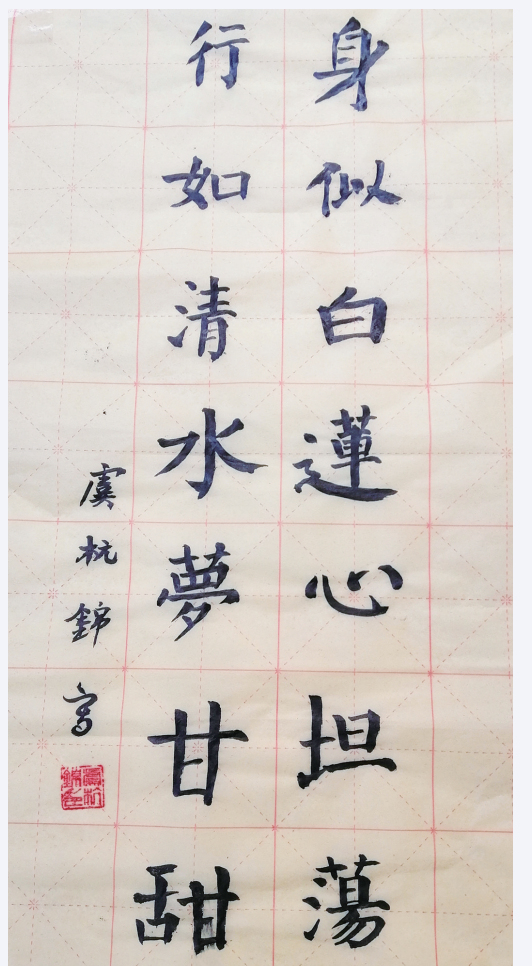 身似白蓮心坦蕩
行如清水夢甘甜
虞杭錦
虞杭錦印